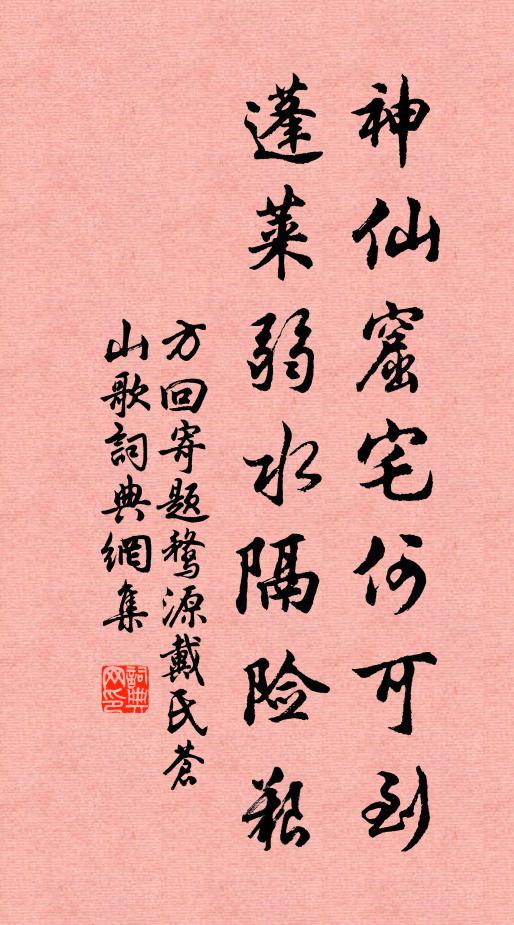 神仙窟宅何可到
蓬莱弱水隔险艰
方回寄题婺源戴氏苍
山歌词典網集
詞典網印